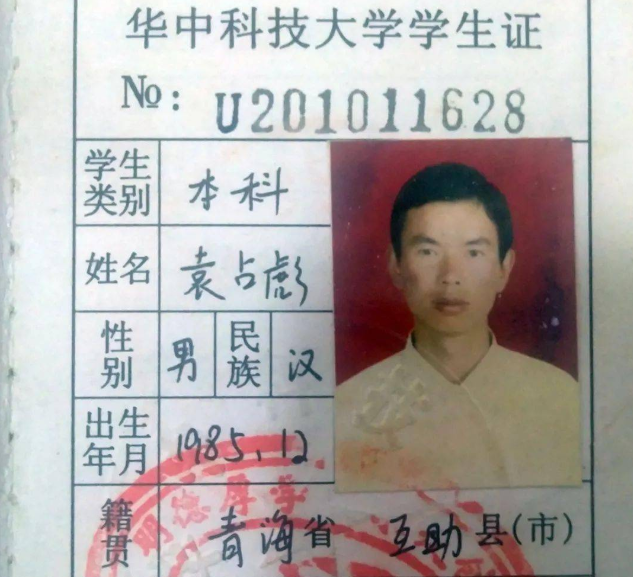 华中科技大学学生证
No: U201011628
学生类别 本科
姓名 袁占彪
性别 男 民族 汉
出生年月 1985.12
籍贯 青海省 互助县(市)
明德厚学